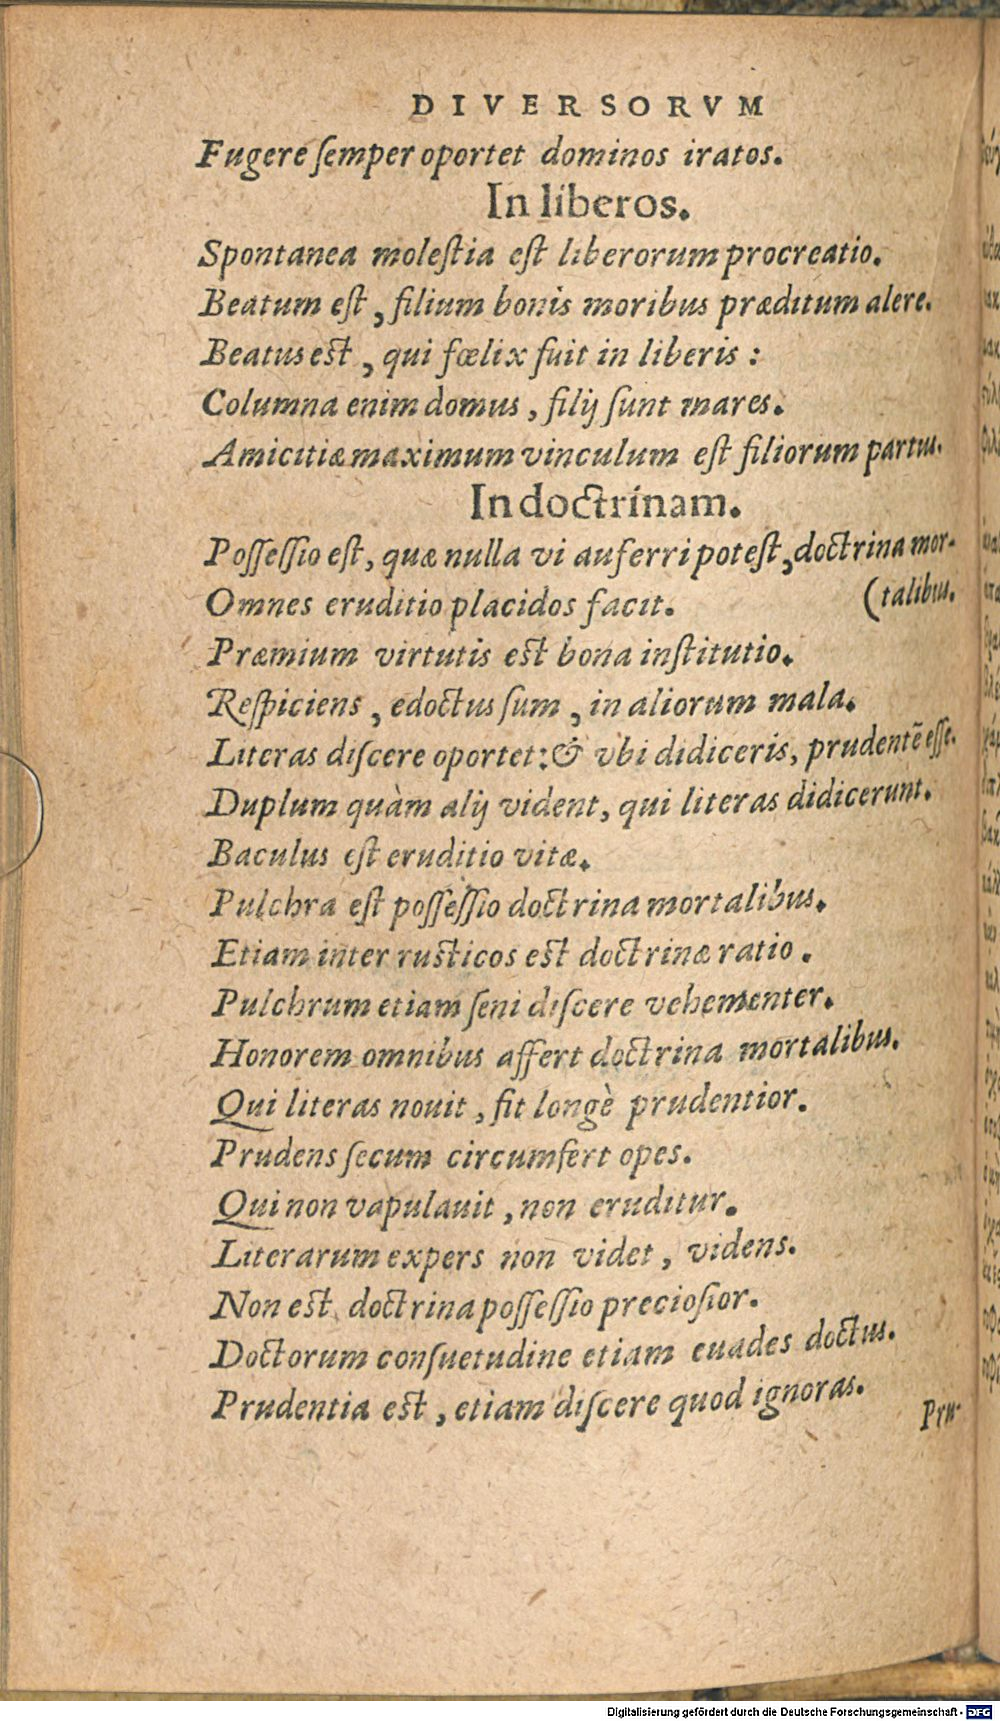 DIVERSORVM
Fugere ſemper oportet dominos iratos.
In liberos.
Spontanea moleſtia eſt liberorum procreatio.
Beatum eſt, filium bonis moribus præditum alere.
Beatus est, qui fœlix fuit in liberis :
Columna enim domus, filij ſunt mares.
Amicitiæ maximum vinculum eſt filiorum partus.
In doctrinam.
Poſſeſſio eſt, quæ nulla vi auferri poteſt, doctrina mor-
Omnes eruditio placidos facit. (talibus.
Præmium virtutis est bona inſtitutio.
Reſpiciens, edoctus ſum, in aliorum mala.
Literas diſcere oportet: & vbi didiceris, prudentẽ eſſe.
Duplum quàm alij vident, qui literas didicerunt.
Baculus eſt eruditio vitæ.
Pulchra eſt poſſeſſio doctrina mortalibus.
Etiam inter rusticos est doctrinæ ratio.
Pulchrum etiam ſeni diſcere vehementer.
Honorem omnibus affert doctrina mortalibus.
Qui literas nouit, fit longè prudentior.
Prudens ſecum circumfert opes.
Qui non vapulauit, non eruditur.
Literarum expers non videt, videns.
Non est doctrina poſſeſſio precioſior.
Doctorum conſuetudine etiam euades doctus.
Prudentia est, etiam diſcere quod ignoras.
Pru-
Digitalisierung gefördert durch die Deutsche Forschungsgemeinschaft - DFG